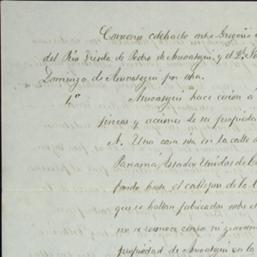 Convenio celebrado entre Gregorio
del Rio Viuda de Pedro de Amoategui, y el Dr.
Domingo de Amoategui por otra.
1º Amoategui hace cesion á
fincas y acciones de su propiedad
A. Una casa sita en la calle
Panamá, Estados Unidos de
fondo hasta el callejon de la
que se hallan fabricados sobre el
no se reconoce censo ni gravamen
propiedad de Amoategui en la